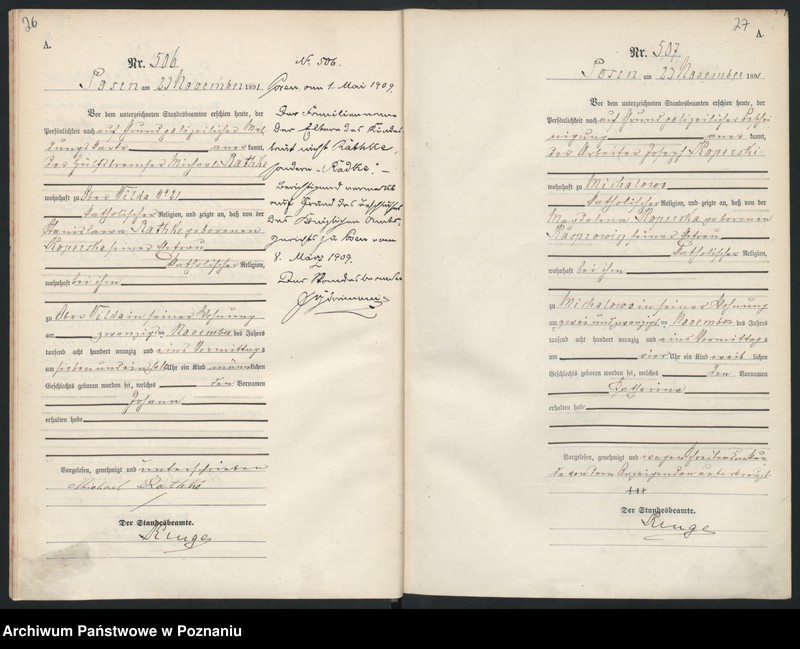 26
A.
Nr. 506
Posen am 23 November 1891
Vor dem unterzeichneten Standesbeamten erschien heute, der
Persönlichkeit nach auf Grund polizeilicher Mel
dungskarte anerkannt,
der Hülfsbremser Michael Rathke
wohnhaft zu Ober Wilda No 21
katholischer Religion, und zeigte an, daß von der
Stanislawa Rathke geborenen
Koperska seiner Ehefrau
katholischer Religion,
wohnhaft bei ihm
zu Ober Wilda in seiner Wohnung
am zwanzigsten November des Jahres
tausend acht hundert neunzig und eins Vormittags
um sieben und ein halb Uhr ein Kind männlichen
Geschlechts geboren worden sei, welches den Vornamen
Johann
erhalten habe
Vorgelesen, genehmigt und unterschrieben
Michael Rathke
Der Standesbeamte.
Kruge
N. 506.
Posen, am 1. Mai 1909.
Der Familienname
der Eltern des Kindes
lautet nicht Rathke,
sondern „Radke“. –
Berichtigend vermerkt
auf Grund des Beschlusses
des Königlichen Amts-
gerichts zu Posen vom
8. März 1909.
Der Standesbeamte
27
A.
Nr. 507
Posen am 23 November 1891
Vor dem unterzeichneten Standesbeamten erschien heute, der
Persönlichkeit nach auf Grund polizeilicher Beschei
nigung anerkannt,
der Arbeiter Joseph Koperski
wohnhaft zu Michalowo
katholischer Religion, und zeigte an, daß von der
Magdalena Koperska geborenen
Kasprowicz seiner Ehefrau
katholischer Religion,
wohnhaft bei ihm
zu Michalowo in seiner Wohnung
am zwei und zwanzigsten November des Jahres
tausend acht hundert neunzig und eins Vormittags
um vier Uhr ein Kind weiblichen
Geschlechts geboren worden sei, welches den Vornamen
Katharina
erhalten habe
Vorgelesen, genehmigt und wegen Schreibensunkun
de von dem Anzeigenden unterkreuzt
+++
Der Standesbeamte.
Kruge
Archiwum Państwowe w Poznaniu